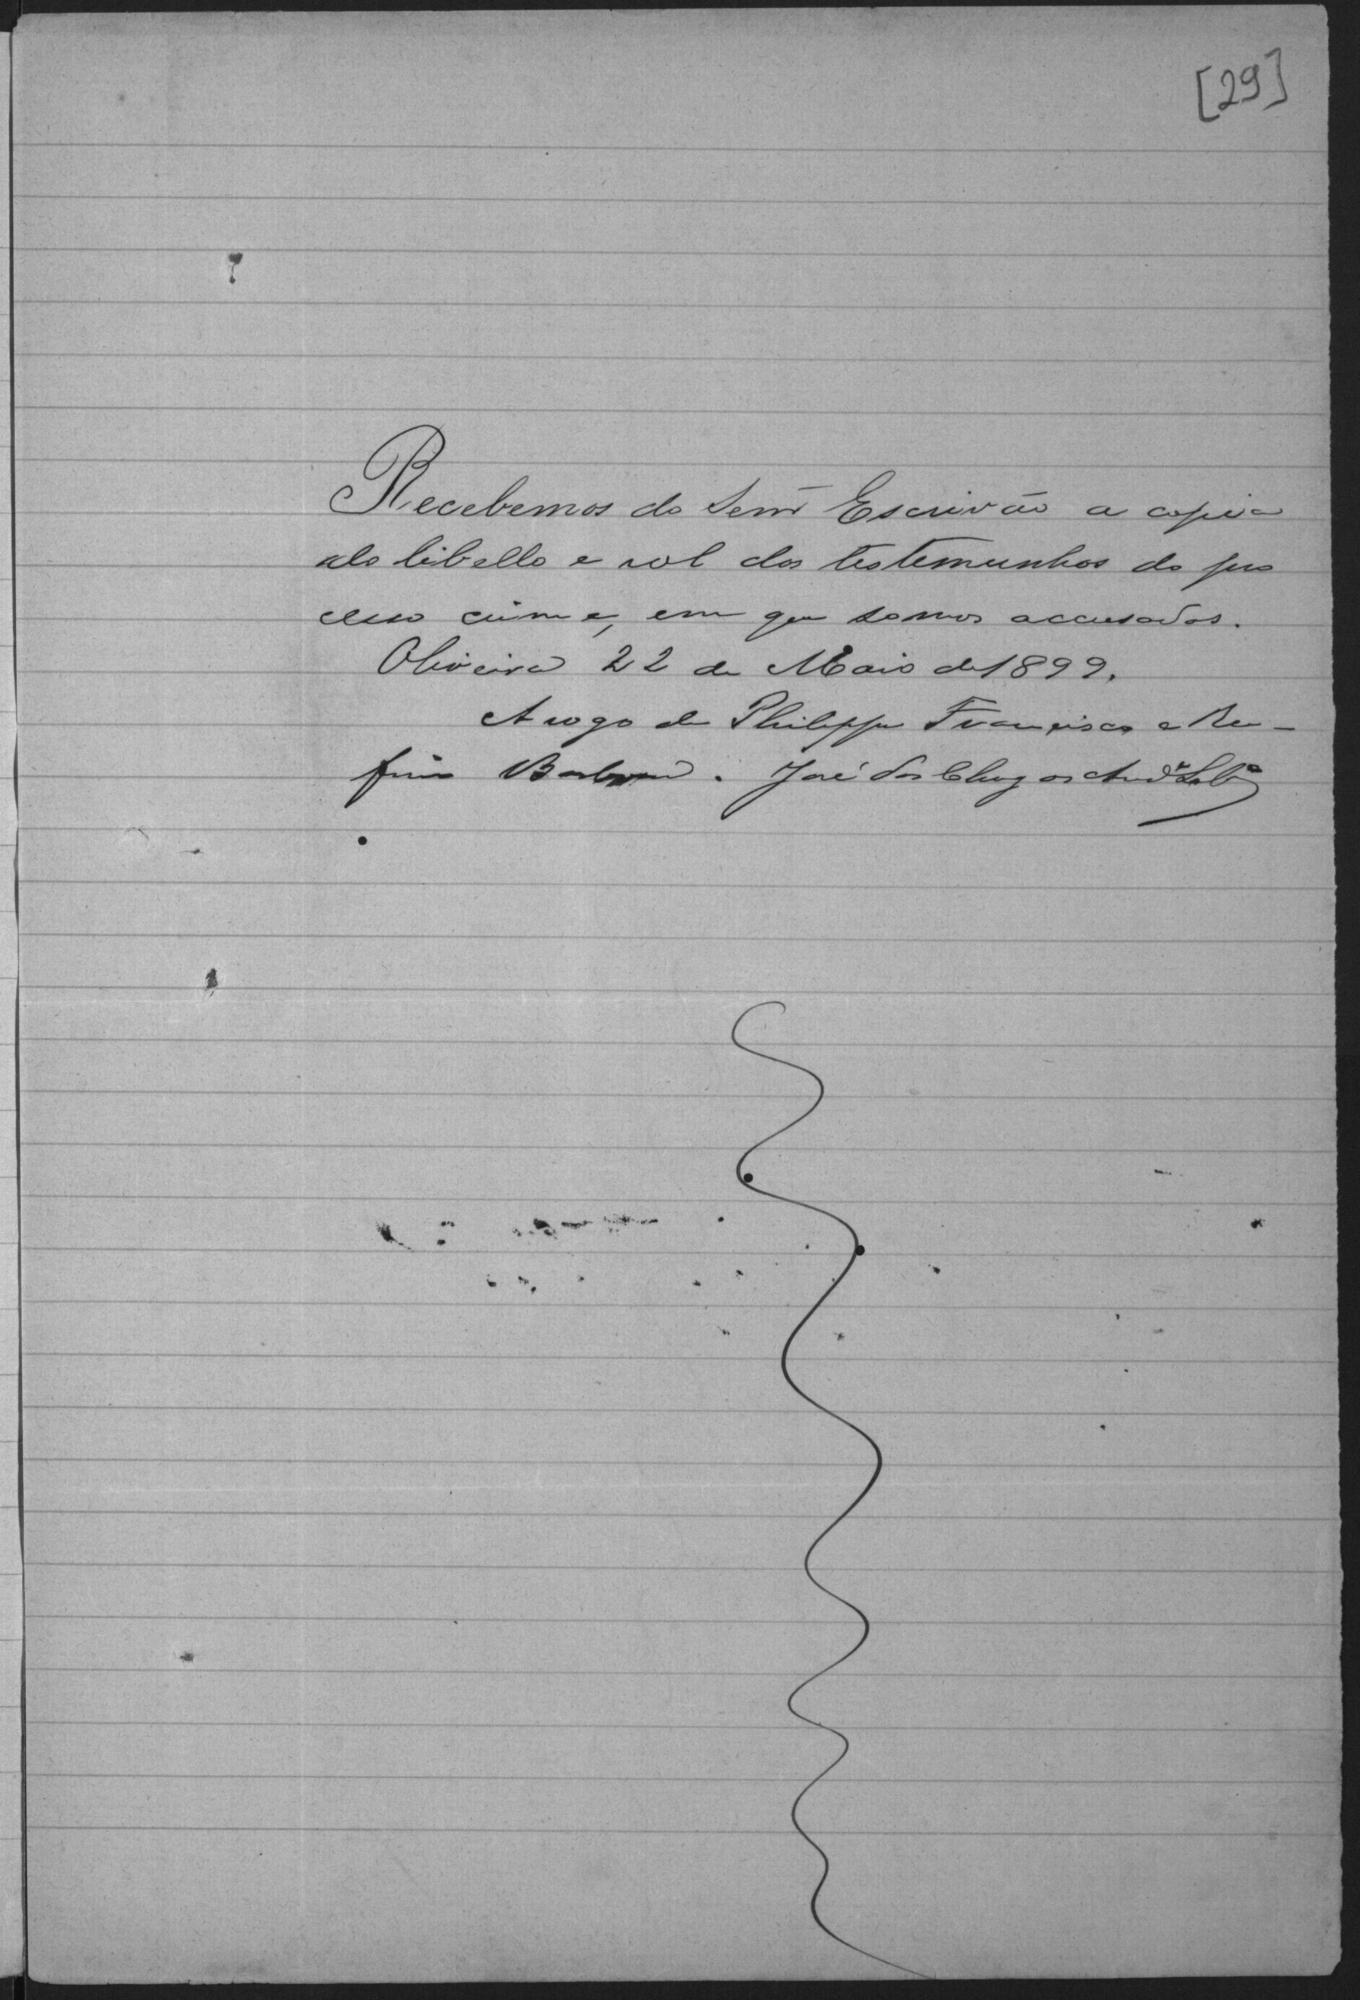 [29]
Recebemos do Senr Escrivão a copia
do libello e rol das testemunhas do pro
cesso crime, em que somos accusados.
Oliveira 22 de Maio de 1899.
A rogo de Philippe Francisco e Ru-
fino Barbosa. José das Chagas Andr.e